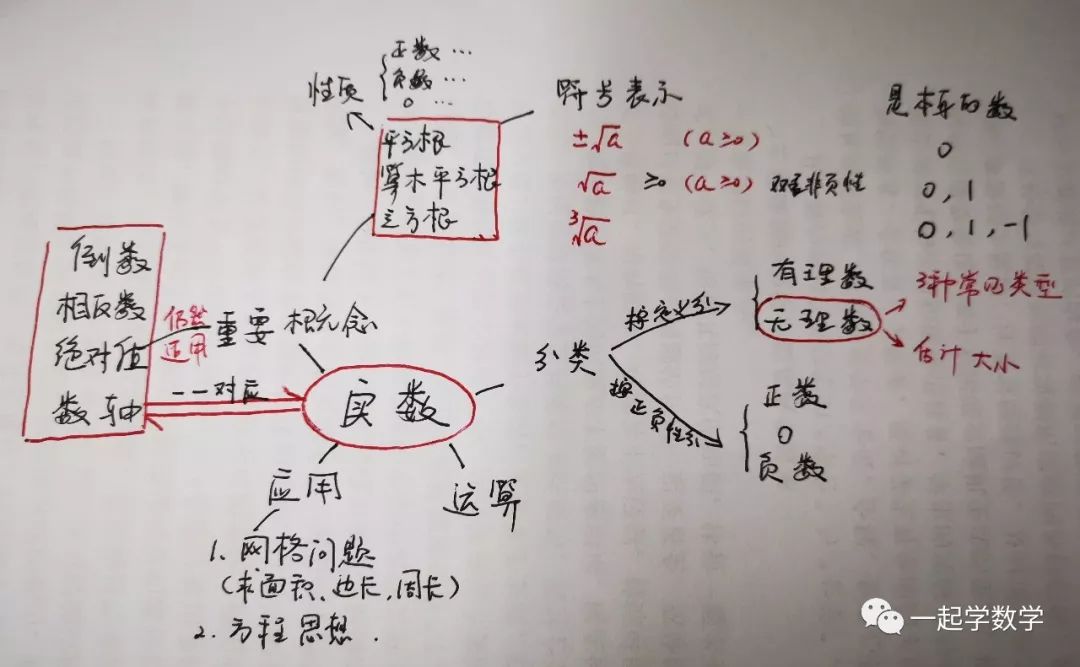 正数…
性质
负数…
0…
符号表示
是本身的数
平方根
±√a (a≥0)
0
算术平方根
√a ≥0 (a≥0) 双重非负性
0,1
立方根
³√a
0,1,-1
倒数
相反数
绝对值
数轴
仍然
适用
重要概念
一一对应
实数
分类
按定义分
有理数
无理数
3种常见类型
估计大小
按正负性分
正数
0
负数
应用
运算
1.网格问题
(求面积、边长,周长)
2.方程思想.
一起学数学